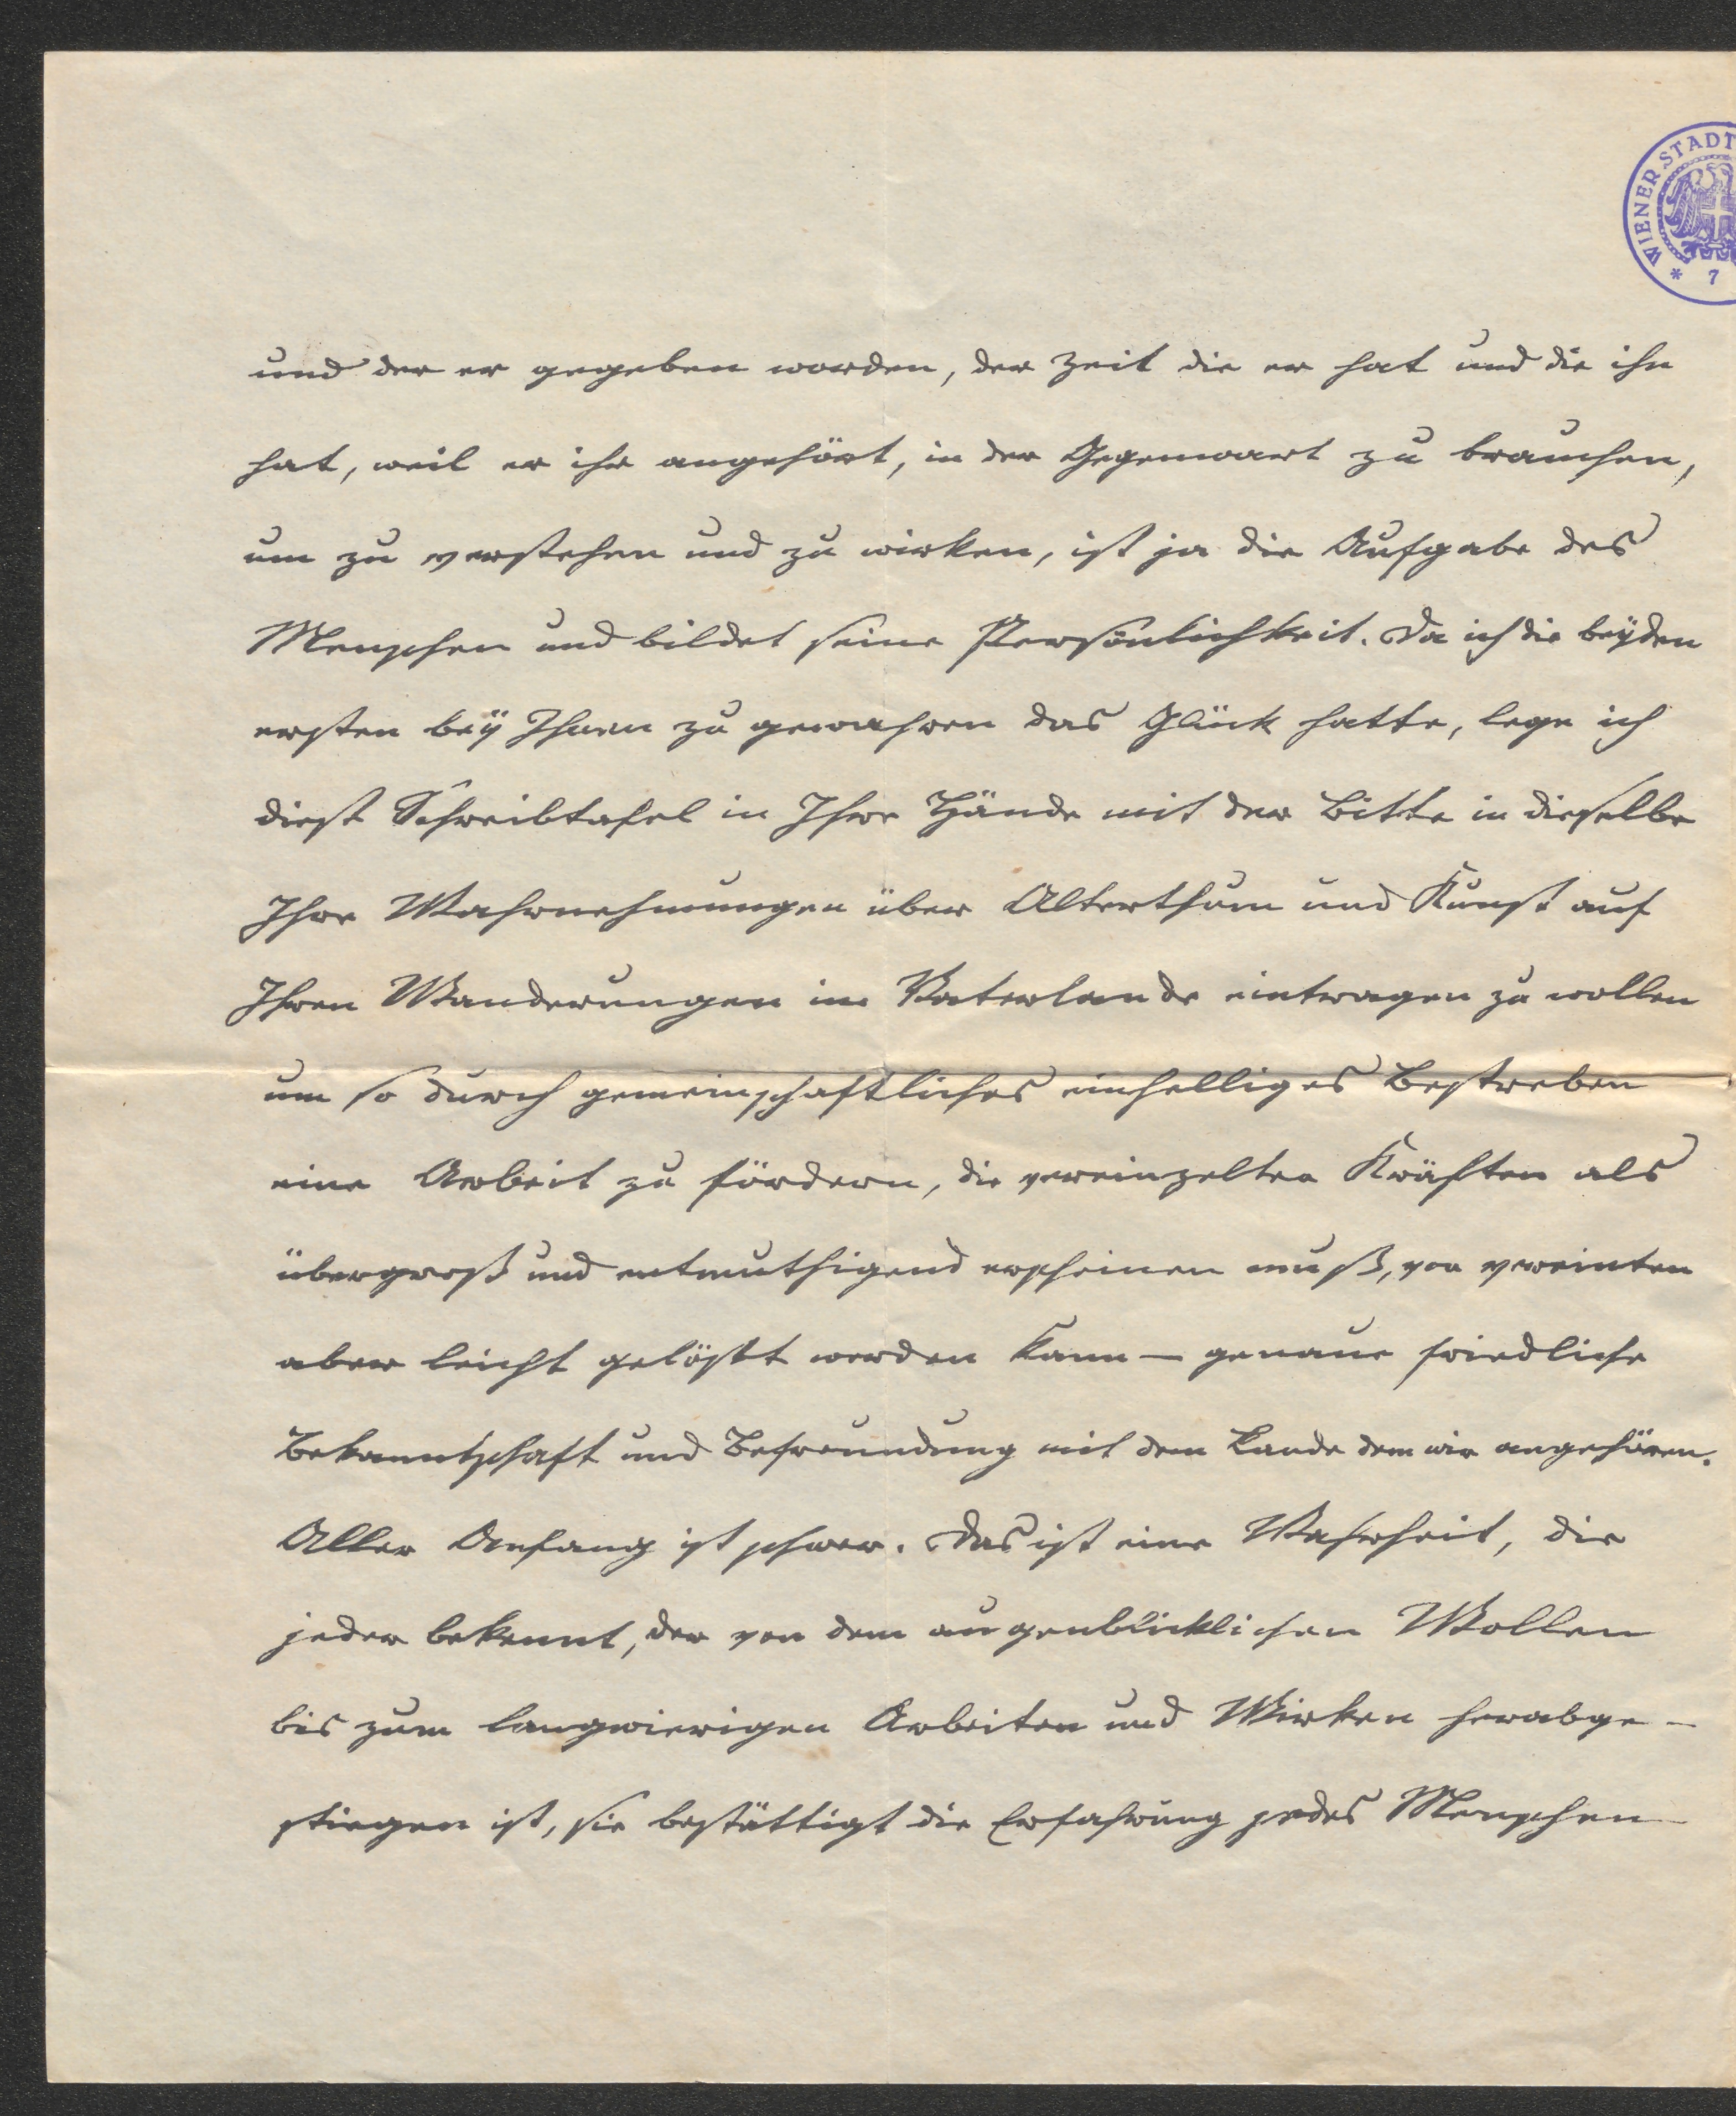 WIENER STADT
* 7
und der er gegeben worden, der Zeit die er hat und die ihn
hat, weil er ihr angehört, in der Gegenwart zu brauchen,
um zu verstehen und zu wirken, ist ja die Aufgabe des
Menschen und bildet seine Persönlichkeit. Da ich die beyden
ersten beÿ Ihnen zu gewahren das Glück hatte, lege ich
diese Schreibtafel in Ihre Hände mit der Bitte in dieselbe
Ihre Wahrnehmungen über Alterthum und Kunst auf
Ihren Wanderungen im Vaterlande eintragen zu wollen
um so durch gemeinschaftliches einhelliges Bestreben
eine Arbeit zu fördern, die vereinzelten Kräften als
übergroß und entmuthigend erscheinen muß, von vereinten
aber leicht gelöst werden kann — genaue friedliche
Bekanntschaft und Befreundung mit dem Lande dem wir angehören.
Aller Anfang ist schwer. Das ist eine Wahrheit, die
jeder bekennt, der von dem augenblicklichen Wollen
bis zum langwierigen Arbeiten und Wirken herabge-
stiegen ist, sie bestättigt die Erfahrung jedes Menschen